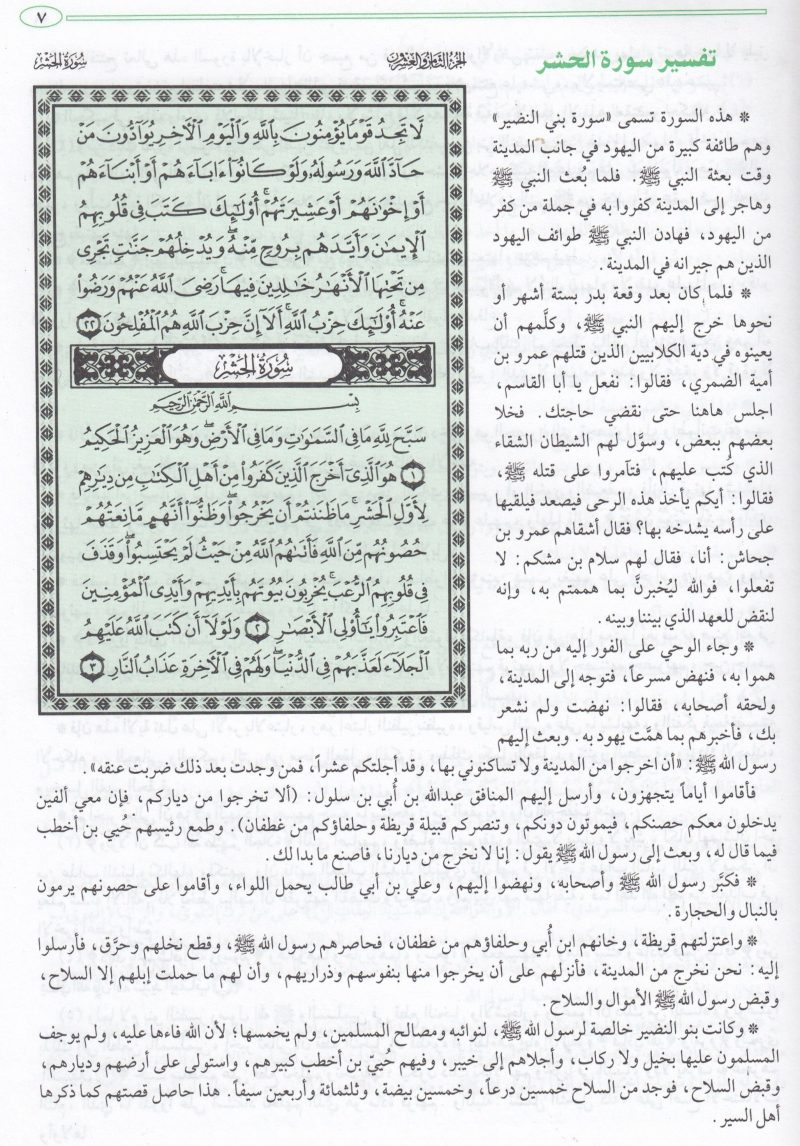 ٧
سورة الحشر
الجزء الثامن والعشرون
تفسير سورة الحشر
لَّا تَجِدُ قَوْمًا يُؤْمِنُونَ بِاللَّهِ وَالْيَوْمِ الْآخِرِ يُوَآدُّونَ مَنْ
حَآدَّ اللَّهَ وَرَسُولَهُ وَلَوْ كَانُوٓا۟ ءَابَآءَهُمْ أَوْ أَبْنَآءَهُمْ
أَوْ إِخْوَٰنَهُمْ أَوْ عَشِيرَتَهُمْ ۚ أُو۟لَٰٓئِكَ كَتَبَ فِى قُلُوبِهِمُ
الْإِيمَٰنَ وَأَيَّدَهُم بِرُوحٍ مِّنْهُ ۖ وَيُدْخِلُهُمْ جَنَّٰتٍ تَجْرِى
مِن تَحْتِهَا الْأَنْهَٰرُ خَٰلِدِينَ فِيهَا ۚ رَضِىَ اللَّهُ عَنْهُمْ وَرَضُوا۟
عَنْهُ ۚ أُو۟لَٰٓئِكَ حِزْبُ اللَّهِ ۚ أَلَآ إِنَّ حِزْبَ اللَّهِ هُمُ الْمُفْلِحُونَ ٢٢
سُورَةُ الْحَشْرِ
بِسْمِ اللَّهِ الرَّحْمَٰنِ الرَّحِيمِ
سَبَّحَ لِلَّهِ مَا فِى السَّمَٰوَٰتِ وَمَا فِى الْأَرْضِ ۖ وَهُوَ الْعَزِيزُ الْحَكِيمُ
١ هُوَ الَّذِىٓ أَخْرَجَ الَّذِينَ كَفَرُوا۟ مِنْ أَهْلِ الْكِتَٰبِ مِن دِيَٰرِهِمْ
لِأَوَّلِ الْحَشْرِ ۚ مَا ظَنَنتُمْ أَن يَخْرُجُوا۟ ۖ وَظَنُّوٓا۟ أَنَّهُم مَّانِعَتُهُمْ
حُصُونُهُم مِّنَ اللَّهِ فَأَتَىٰهُمُ اللَّهُ مِنْ حَيْثُ لَمْ يَحْتَسِبُوا۟ ۖ وَقَذَفَ
فِى قُلُوبِهِمُ الرُّعْبَ ۚ يُخْرِبُونَ بُيُوتَهُم بِأَيْدِيهِمْ وَأَيْدِى الْمُؤْمِنِينَ
فَاعْتَبِرُوا۟ يَٰٓأُو۟لِى الْأَبْصَٰرِ ٢ وَلَوْلَآ أَن كَتَبَ اللَّهُ عَلَيْهِمُ
الْجَلَآءَ لَعَذَّبَهُمْ فِى الدُّنْيَا ۖ وَلَهُمْ فِى الْآخِرَةِ عَذَابُ النَّارِ ٣
* هذه السورة تسمى «سورة بني النضير»
وهم طائفة كبيرة من اليهود في جانب المدينة
وقت بعثة النبي ﷺ. فلما بُعث النبي ﷺ
وهاجر إلى المدينة كفروا به في جملة من كفر
من اليهود، فهادن النبي ﷺ طوائف اليهود
الذين هم جيرانه في المدينة.
* فلما كان بعد وقعة بدر بستة أشهر أو
نحوها خرج إليهم النبي ﷺ، وكلَّمهم أن
يعينوه في دية الكلابيين الذين قتلهم عمرو بن
أمية الضمري، فقالوا: نفعل يا أبا القاسم،
اجلس هاهنا حتى نقضي حاجتك. فخلا
بعضهم ببعض، وسوَّل لهم الشيطان الشقاء
الذي كُتب عليهم، فتآمروا على قتله ﷺ،
فقالوا: أيكم يأخذ هذه الرحى فيصعد فيلقيها
على رأسه يشدخه بها؟ فقال أشقاهم عمرو بن
جحاش: أنا، فقال لهم سلام بن مشكم: لا
تفعلوا، فوالله ليُخبرنَّ بما هممتم به، وإنه
لنقض للعهد الذي بيننا وبينه.
* وجاء الوحي على الفور إليه من ربه بما
هموا به، فنهض مسرعاً، فتوجه إلى المدينة،
ولحقه أصحابه، فقالوا: نهضت ولم نشعر
بك، فأخبرهم بما همَّت يهود به، وبعث إليهم
رسول الله ﷺ: «أن اخرجوا من المدينة ولا تساكنوني بها، وقد أجلتكم عشراً، فمن وجدت بعد ذلك ضربت عنقه».
فأقاموا أياماً يتجهزون، وأرسل إليهم المنافق عبدالله بن أُبي بن سلول: (ألا تخرجوا من دياركم، فإن معي ألفين
يدخلون معكم حصنكم، فيموتون دونكم، وتنصركم قبيلة قريظة وحلفاؤكم من غطفان). وطمع رئيسهم حُيي بن أخطب
فيما قال له، وبعث إلى رسول الله ﷺ يقول: إنا لا نخرج من ديارنا، فاصنع ما بدا لك.
* فكبَّر رسول الله ﷺ وأصحابه، ونهضوا إليهم، وعلي بن أبي طالب يحمل اللواء، وأقاموا على حصونهم يرمون
بالنبال والحجارة.
* واعتزلتهم قريظة، وخانهم ابن أُبي وحلفاؤهم من غطفان، فحاصرهم رسول الله ﷺ، وقطع نخلهم وحرَّق، فأرسلوا
إليه: نحن نخرج من المدينة، فأنزلهم على أن يخرجوا منها بنفوسهم وذراريهم، وأن لهم ما حملت إبلهم إلا السلاح،
وقبض رسول الله ﷺ الأموال والسلاح.
* وكانت بنو النضير خالصة لرسول الله ﷺ، لنوائبه ومصالح المسلمين، ولم يخمسها؛ لأن الله فاءها عليه، ولم يوجف
المسلمون عليها بخيل ولا ركاب، وأجلاهم إلى خيبر، وفيهم حُييّ بن أخطب كبيرهم، واستولى على أرضهم وديارهم،
وقبض السلاح، فوجد من السلاح خمسين درعاً، وخمسين بيضة، وثلثمائة وأربعين سيفاً. هذا حاصل قصتهم كما ذكرها
أهل السير.